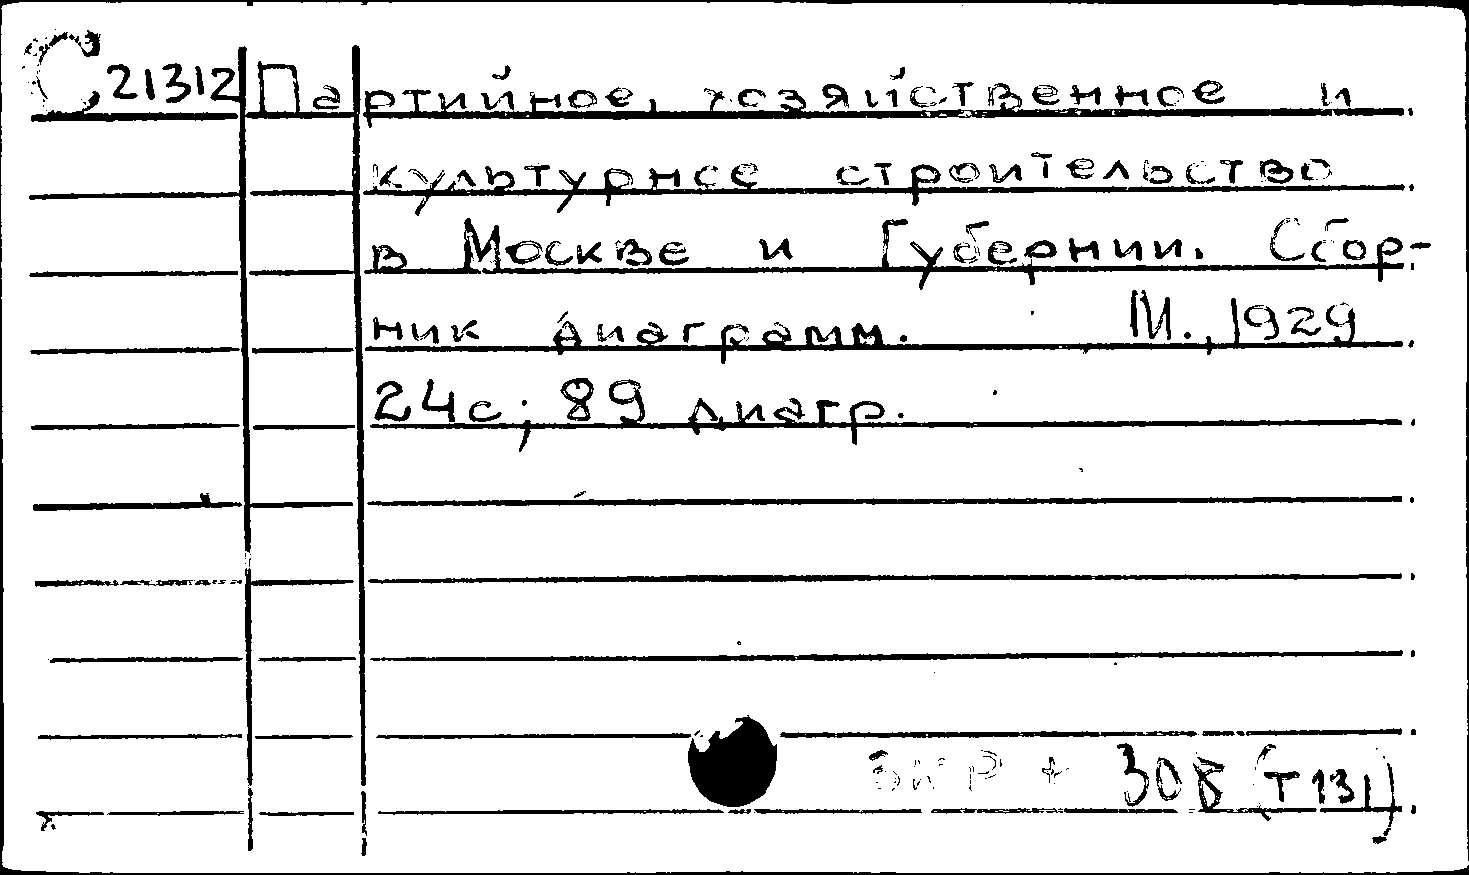 С21312 Партийное, хозяйственное и
культурное строительство
в Москве и Губернии. Сбор-
ник диаграмм. М., 1929
24с; 89 диагр.
ВКР + 30В (Т131)